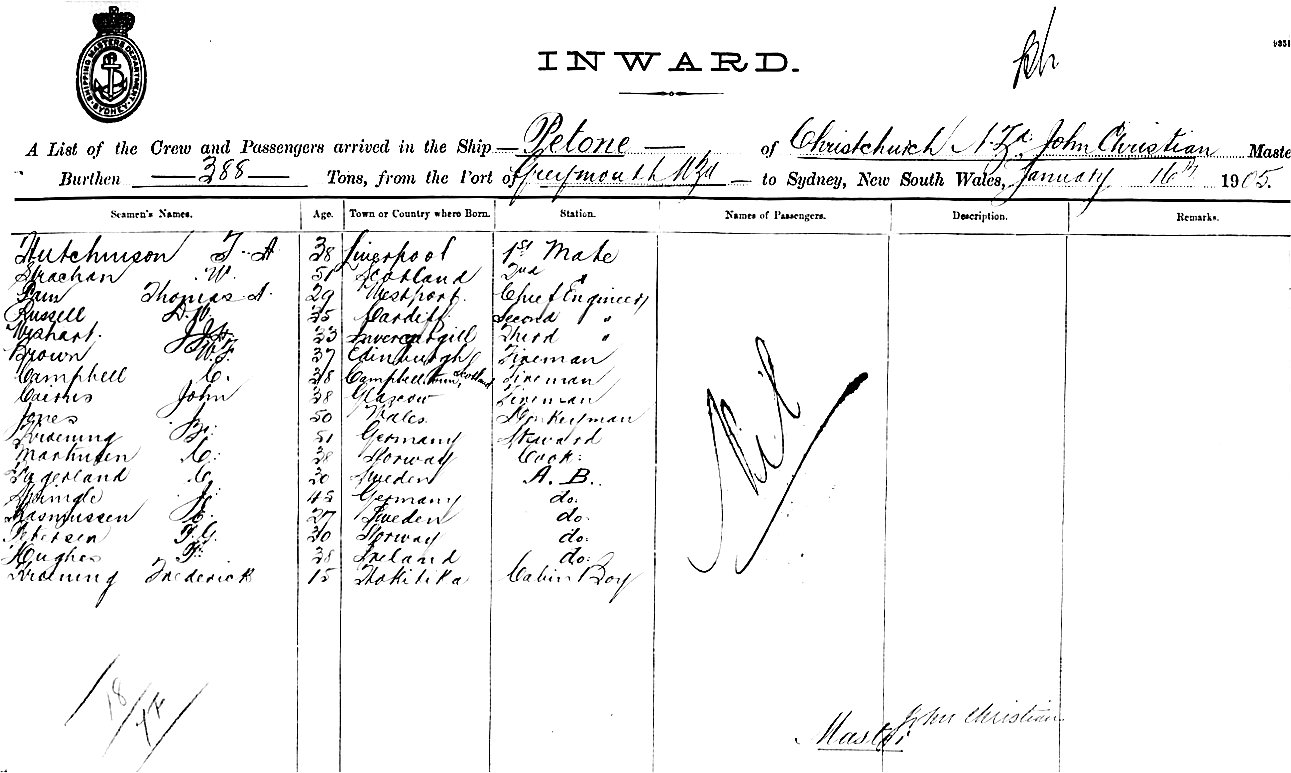 SHIPPING MASTERS DEPARTMENT SYDNEY
INWARD.
A List of the Crew and Passengers arrived in the Ship Petone of Christchurch N.Zd. John Christian Maste
Burthen 388 Tons, from the Port of Greymouth NZd to Sydney, New South Wales, January 16th 1905.
Seamen's Names. Age. Town or Country where Born. Station. Names of Passengers. Description. Remarks.
Hutchinson T. A 38 Liverpool 1st Mate
Strachan W. 51 Scotland 2nd "
Thomas A. 29 Westport. Chief Engineer
Russell D.W. 35 Cardiff Second "
Wishart. 33 Invercargill Third "
Brown W.F. 37 Edinburgh Fireman
Campbell C. 38 Campbelltown, Scotland Fireman
Cairns John 38 Glascow Fireman
Jones 50 Wales Donkeyman
51 Germany Steward
C. 38 Norway Cook.
C. 30 Sweden A. B.
J. 45 Germany do.
Rasmussen 27 Sweden do.
Petersen F.G. 30 Norway do.
Hughes 38 Ireland do.
Frederick 15 Hokitika Cabin Boy
Nil
18
John Christian
Master